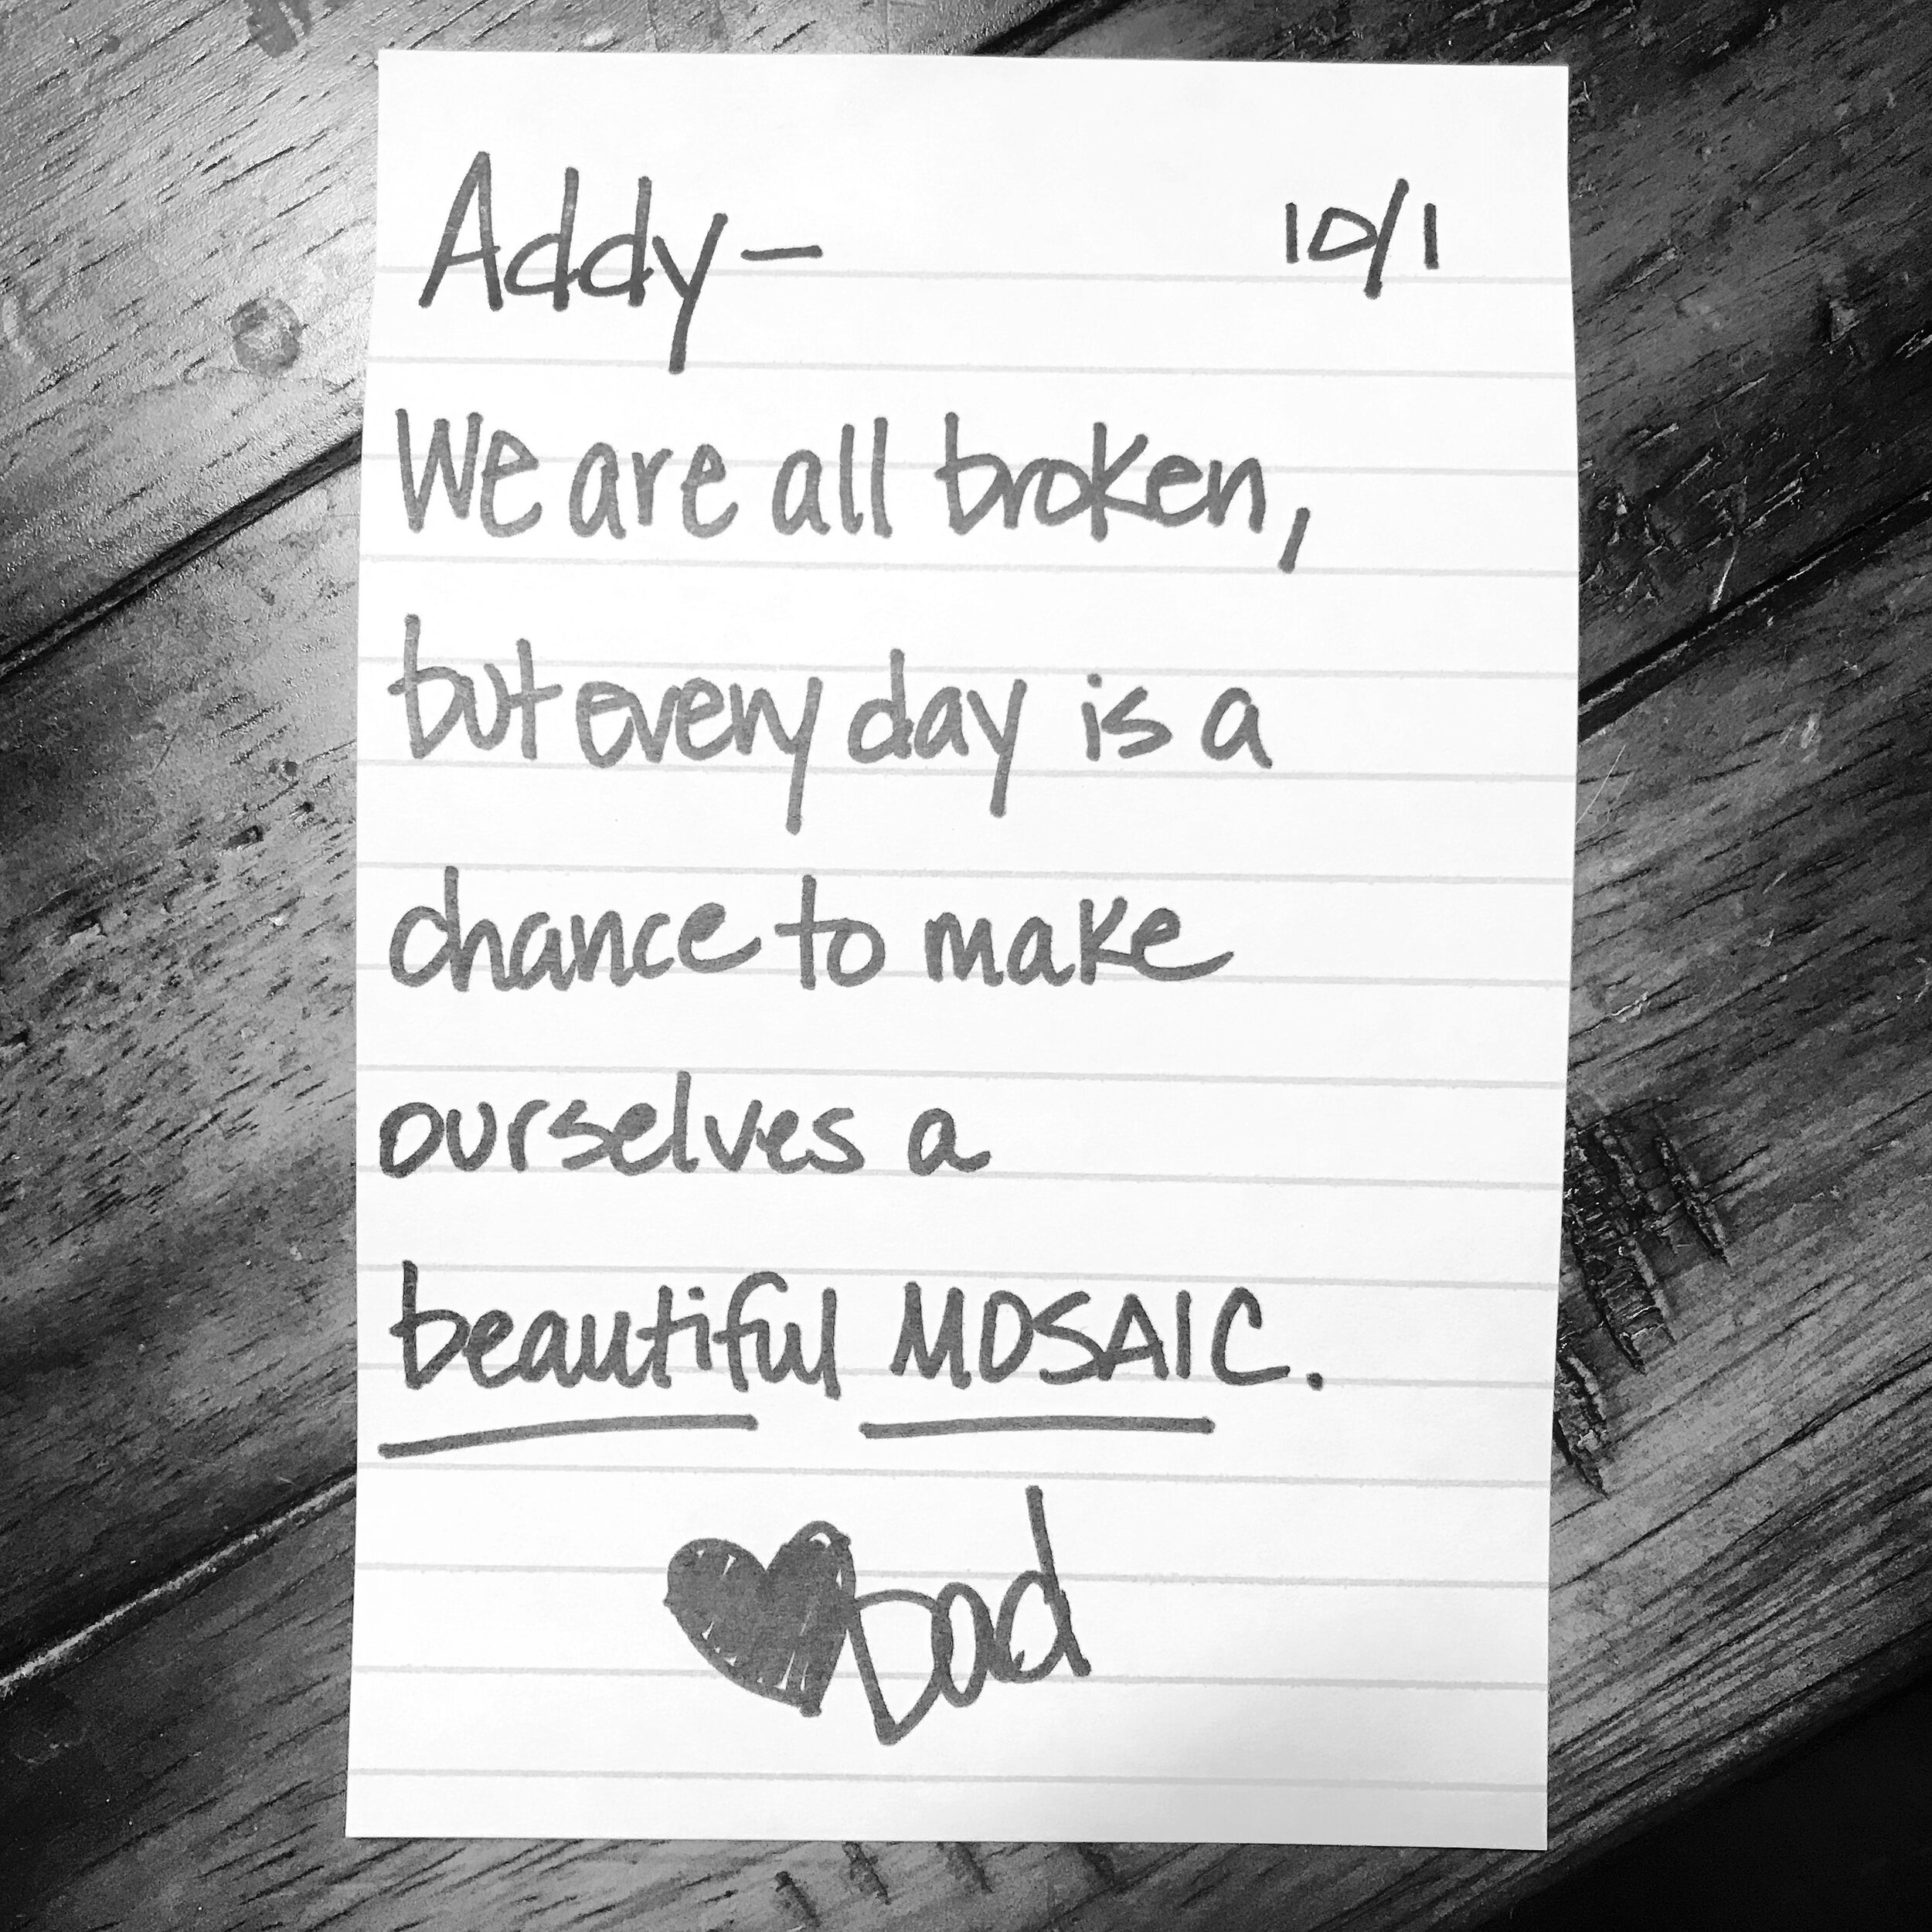 Addy- 10/1
We are all broken,
but every day is a
chance to make
ourselves a
beautiful MOSAIC.
♥Dad